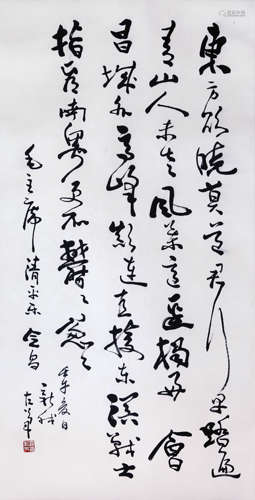 東方欲曉莫道君行早踏遍
青山人未老風景這邊獨好會
昌城外高峰顛連直接东溟戰士
指看南粤更加鬱〻葱〻
毛主席清平乐会昌
壬午夏日